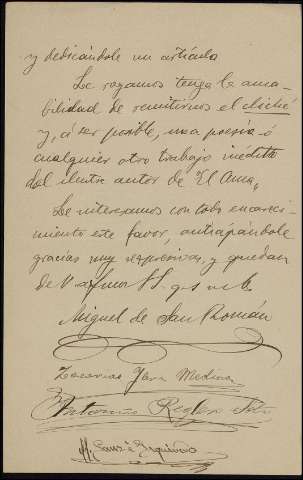 y dedicándole un artículo
Le rogamos tenga la ama-
bilidad de remitirnos el cliché
y, á ser posible, una poesía ó
cualquier otro trabajo inédito
del ilustre autor de El Ama,
Le interesamos con todo encareci-
miento este favor, anticipándole
gracias muy expresivas, y quedan
de V. afmos SS. q. s. m. b.
Miguel de San Román
Medina
Antonio